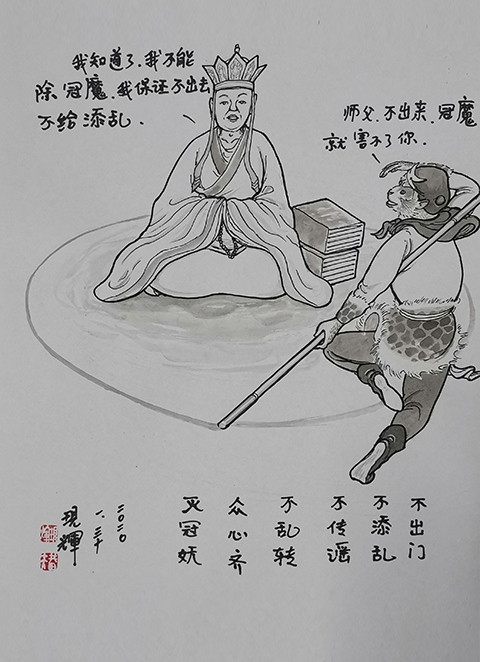 我知道了,我不能
除冠魔,我保证不出去
不给添乱.
师父,不出来,冠魔
就害不了你.
不出门
不添乱
不传谣
不乱转
众心齐
灭冠妖
二〇二〇
一、三十
現輝